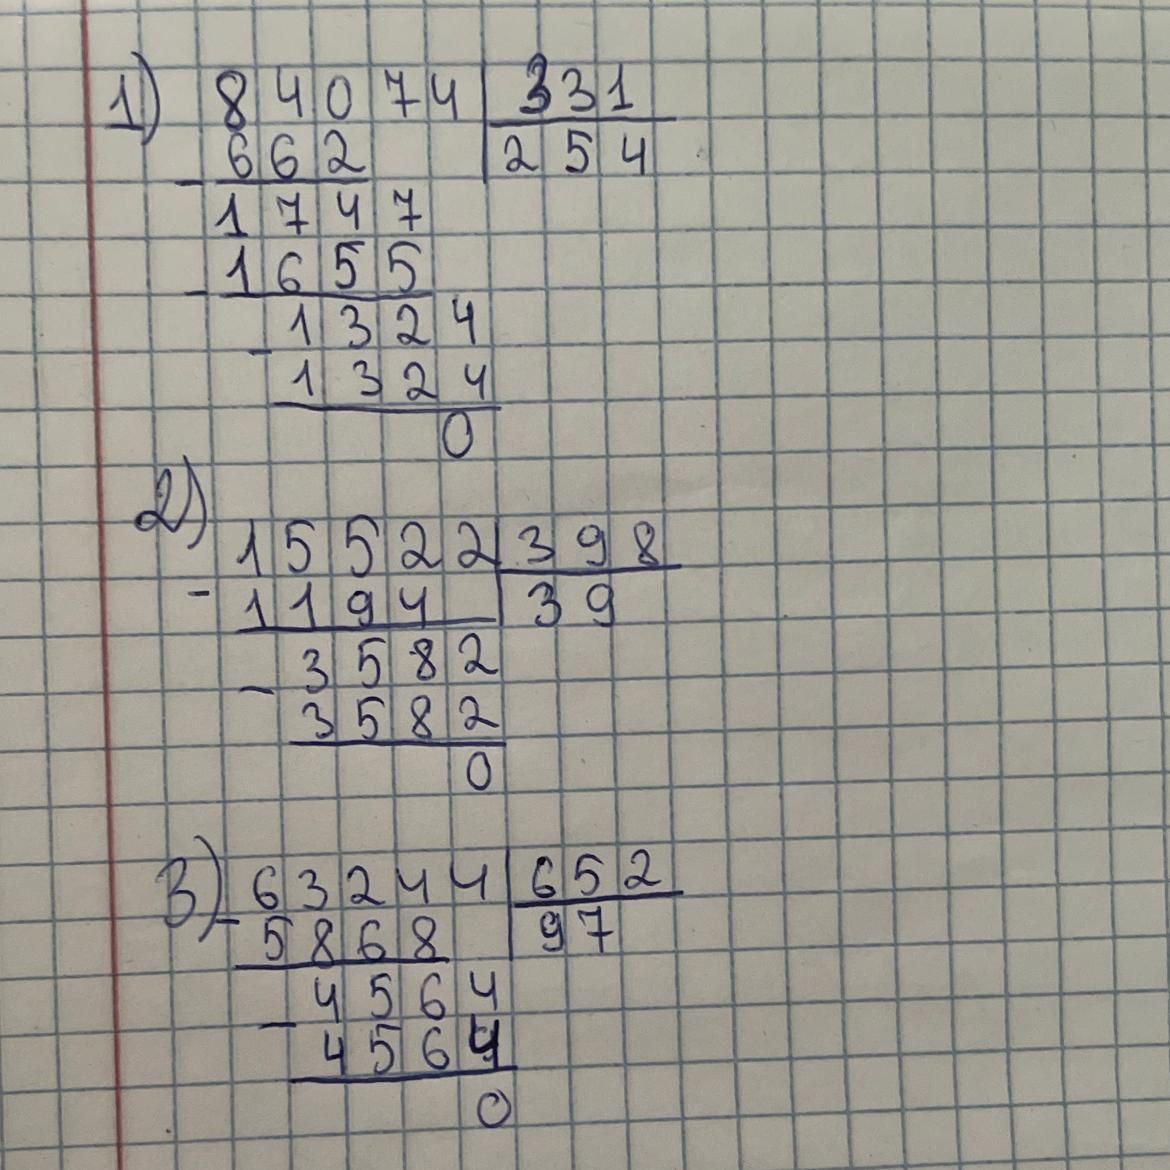 1) 84074 331
662 254
- 1747
1655
- 1324
- 1324
0
2)
15522 398
- 1194 39
3582
- 3582
0
3) 63244 652
- 5868 97
4564
- 4564
0